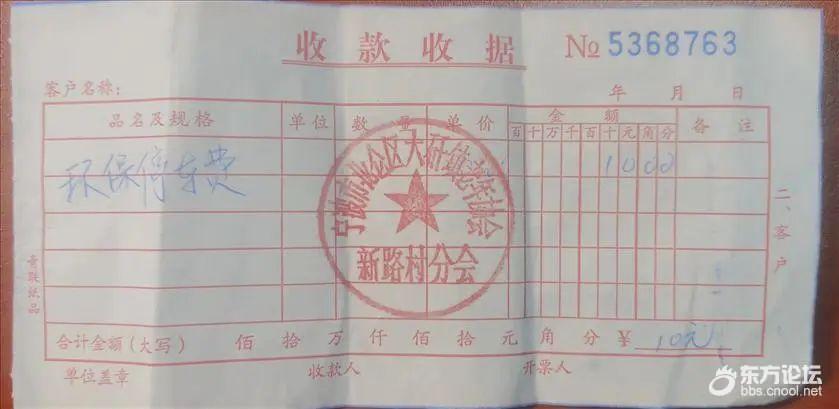 收款收据 № 5368763
客户名称： 年 月 日
品名及规格 单位 数量 单价 金额 备注
百 十 万 千 百 十 元 角 分
环保停车费 1000
宁波市北仑区大矸镇老年协会
新路村分会
二、客户
青联纸品
合计金额(大写) 佰 拾 万 仟 佰 拾 元 角 分 ¥ 10元
单位盖章 收款人 开票人
东方论坛
bbs.cnool.net